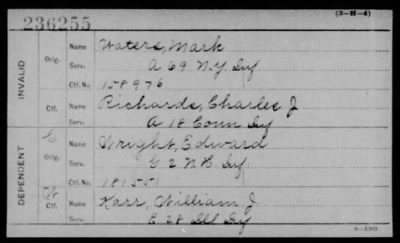 (3-H-4)
236255
INVALID
Orig. Name Waters, Mark
Serv. A 69 N.Y. Inf
Ctf. No. 158976
Ctf. Name Richards, Charles J
A 18 Conn Inf
DEPENDENT
Orig. Name Wright, Edward
Serv. G 2 N.H. Inf
Ctf. No.
Ctf. Name Karr, William J.
E 28 Ill Inf